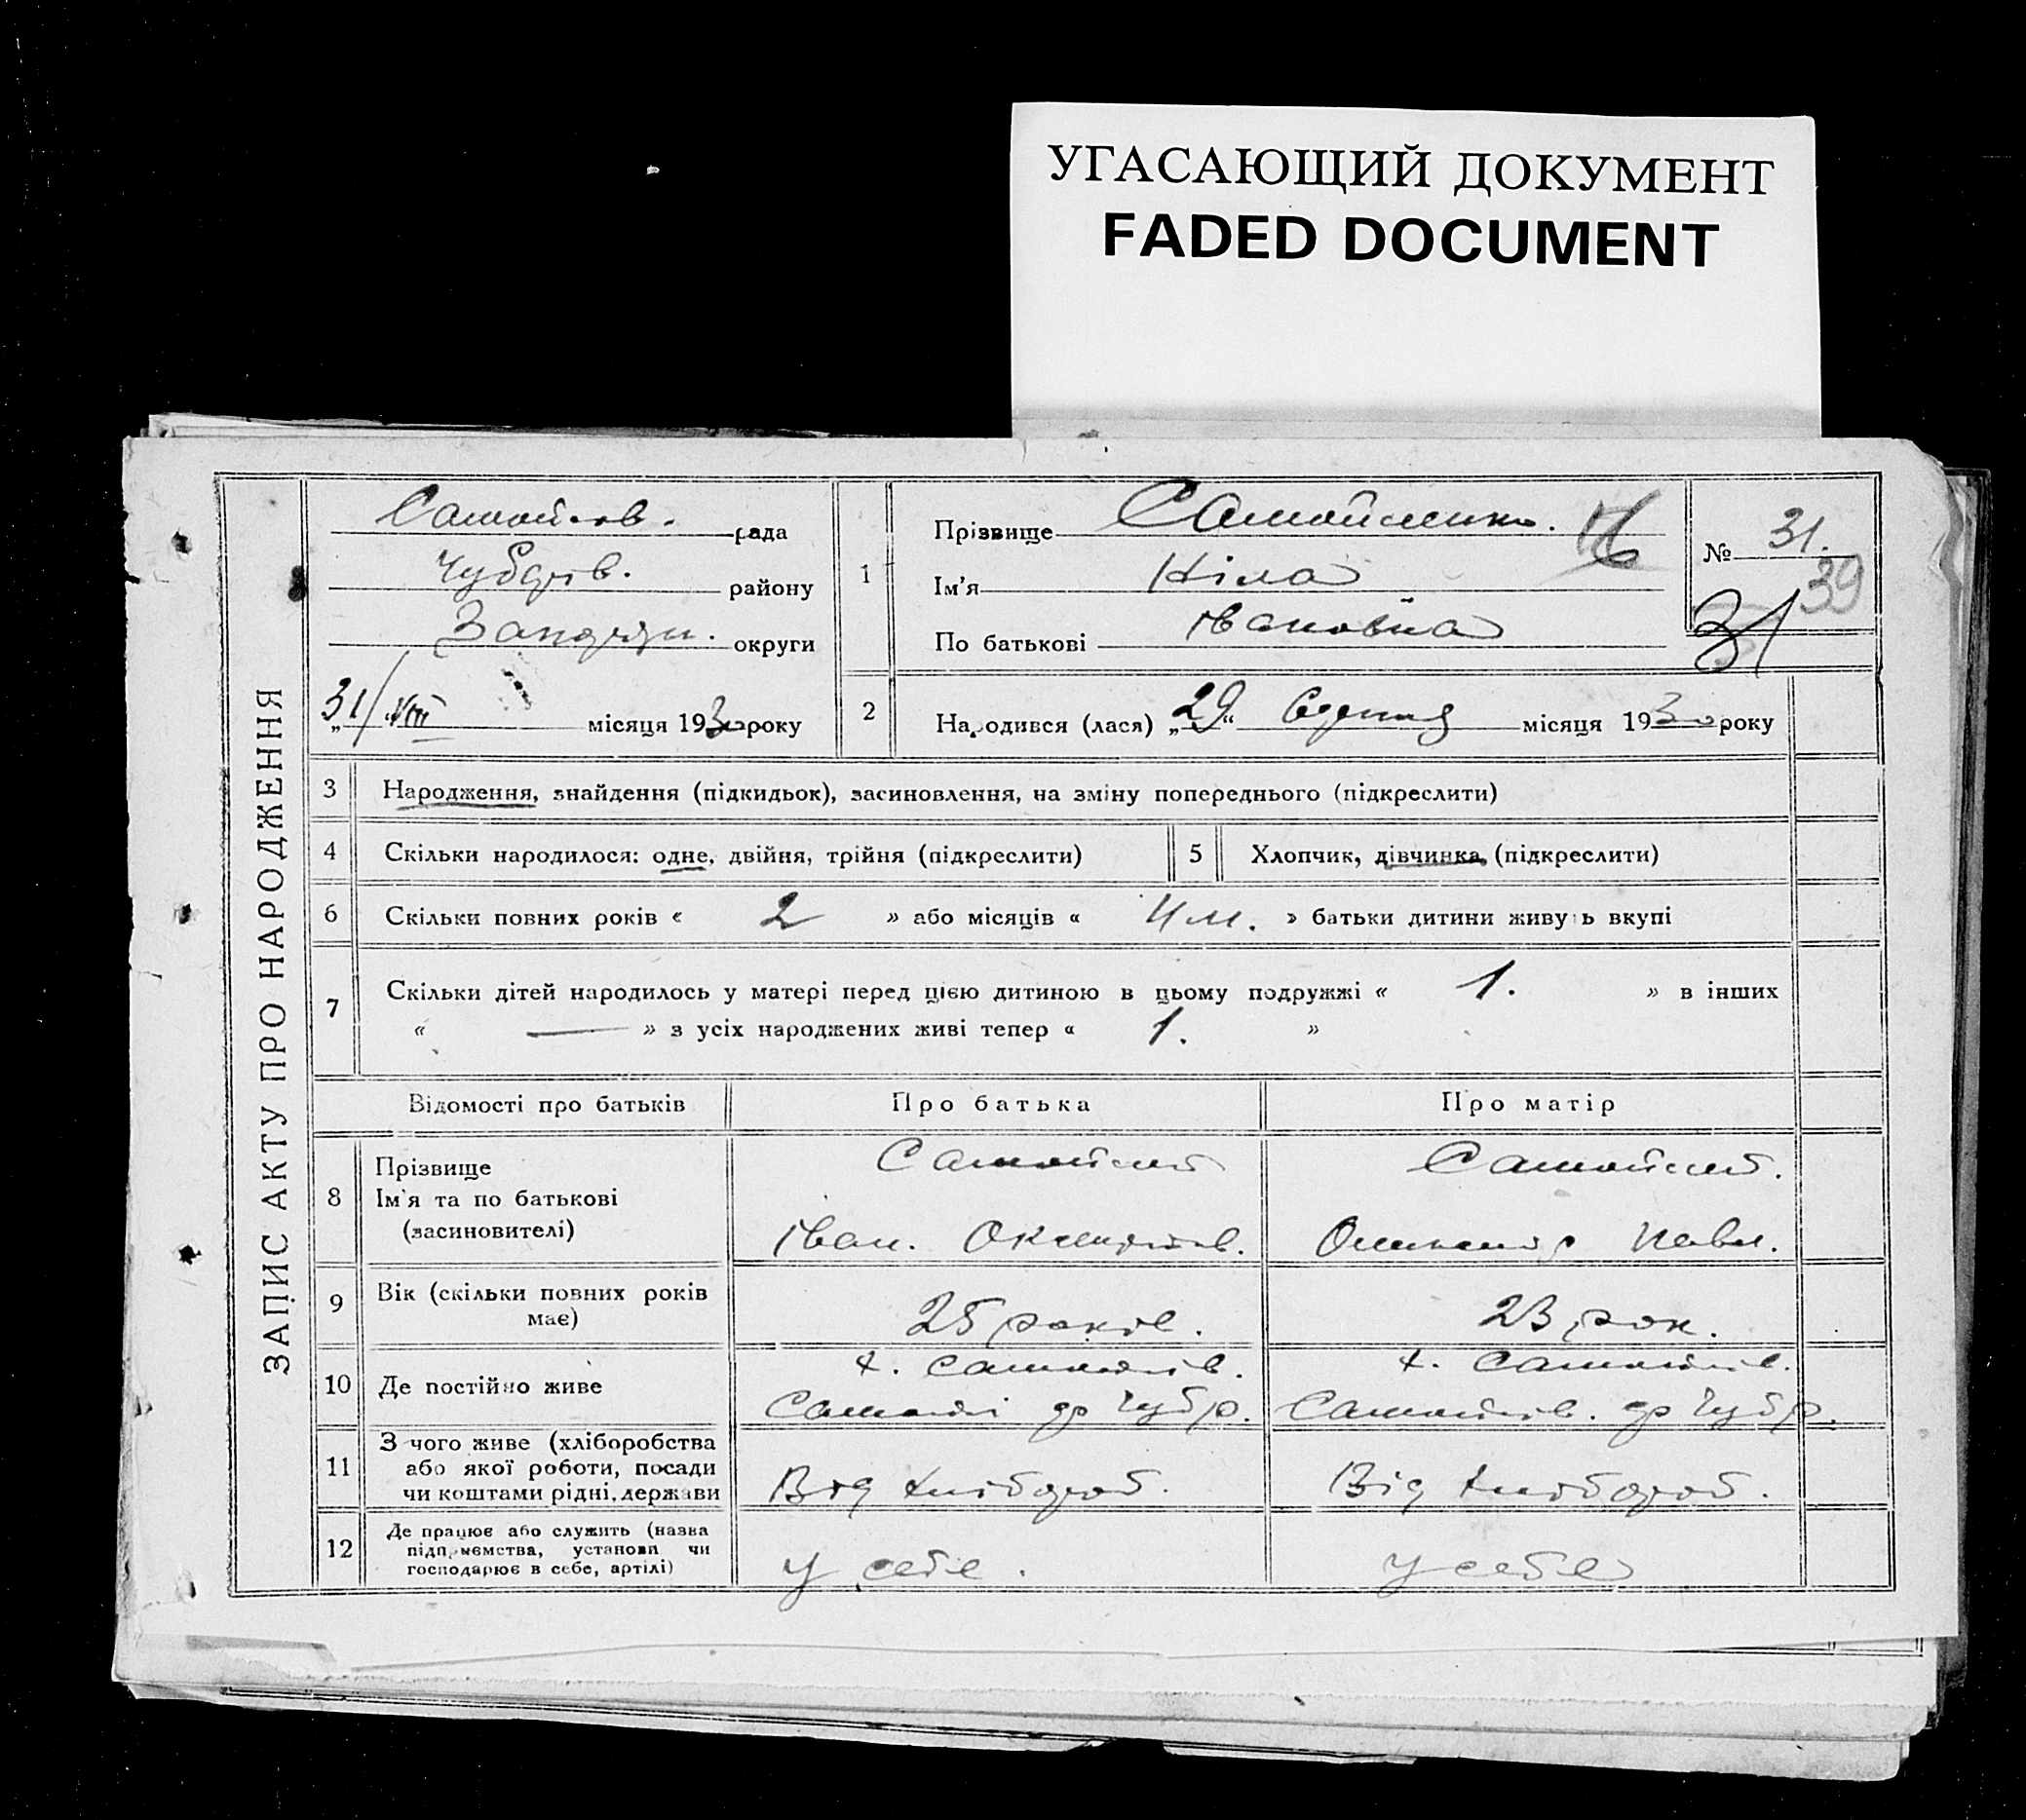 УГАСАЮЩИЙ ДОКУМЕНТ
FADED DOCUMENT
ЗАПИС АКТУ ПРО НАРОДЖЕННЯ
Самойлов. рада
Чубарів. району
округи
31/VIII місяця 1930 року
1
Прізвище Самойленко.
Ім'я Ніла
По батькові Івановна
№ 31.
39
31
2
Народився (лася) „29“ Серпня місяця 1930 року
3 Народження, знайдення (підкидьок), засиновлення, на зміну попереднього (підкреслити)
4 Скільки народилося: одне, двійня, трійня (підкреслити)
5 Хлопчик, дівчинка, (підкреслити)
6 Скільки повних років « 2 » або місяців « 4 м. » батьки дитини живуть вкупі
7 Скільки дітей народилось у матері перед цією дитиною в цьому подружжі « 1. » в інших
« — » з усіх народжених живі тепер « 1. »
Відомості про батьків Про батька Про матір
8 Прізвище
Ім'я та по батькові
(засиновителі)
Самойлен
Іван.
Самойлен.
Павл.
9 Вік (скільки повних років
має)
25 років.
23 рок.
10 Де постійно живе
х. Самойлів.
Чуб р.
х. Самойлів.
Самойлів. Чуб р.
11 З чого живе (хліборобства
або якої роботи, посади
чи коштами рідні, держави
Від хлібороб.
Від хлібороб.
12 Де працює або служить (назва
підприємства, установи чи
господарює в себе, артілі)
у себе.
у себе